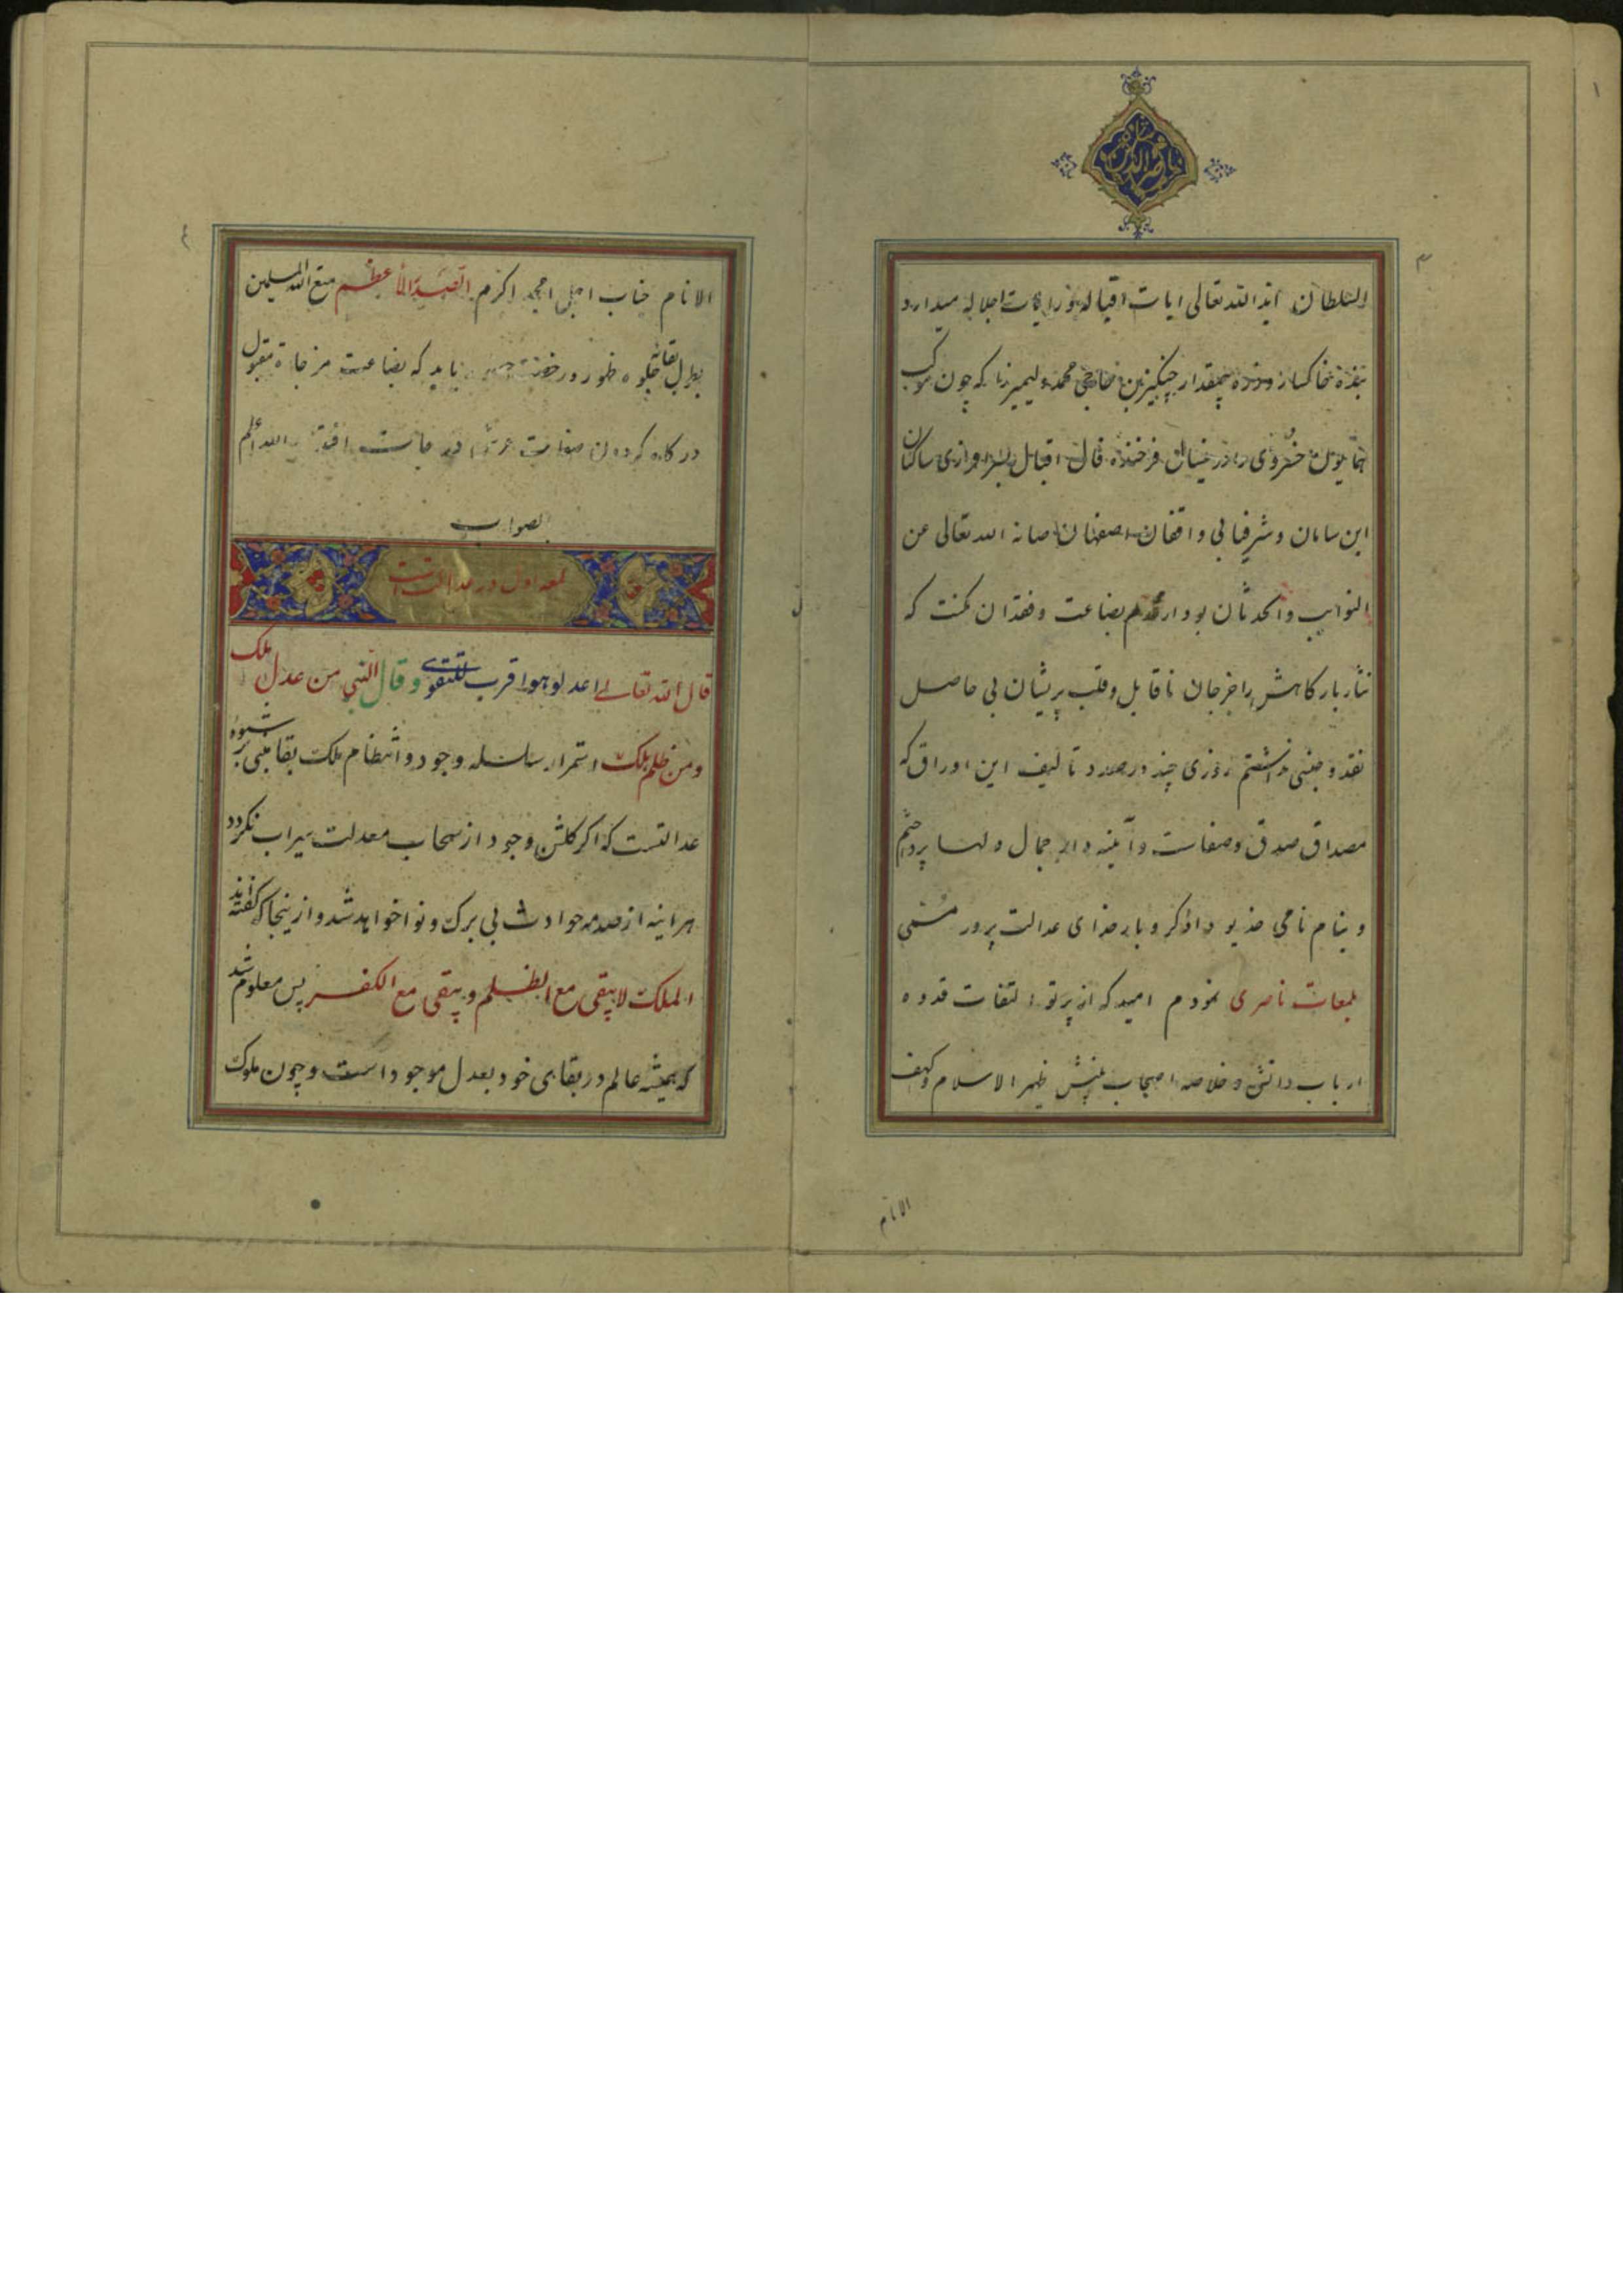 ناصرالدین شاه
۳
السلطان اید الله تعالی ایات اقباله و رایات اجلاله میدارد
بنده خاکسار و ذره بیمقدار چنگیز بن حاجی محمد ولیمیرزا که چون موکب
همایون خسروی را در نیسان فرخنده فال اقبال بسرافرازی ساکنان
این سامان و شرفیابی واقفان اصفهان صانه الله تعالی عن
النوایب والحدثان بود از عدم بضاعت و فقدان مکنت که
نثار بارگاهش را جز جان ناقابل و قلب پریشان بی حاصل
نقد و جنسی نداشتم روزی چند در صدد تالیف این اوراق که
مصداق صدق و صفاست و آئینه دار جمال دلها پرداختم
و بنام نامی خدیو دادگر و بار خدای عدالت پرور مسمی
بلمعات ناصری نمودم امید که از پرتو التفات قدوه
ارباب دانش و خلاصه اصحاب بینش ظهر الاسلام و کهف
الانام
٤
الانام جناب اجل امجد اکرم الاعظم متع الله المسلمین
بطول بقائه جلوه ظهور و رخصت یابد که بضاعت مزجاة مقبول
درگاه گردون افتد الله اعلم
بالصواب
لمعه اول در عدالت است
قال الله تعالی اعدلو هوا قرب للتقوی و قال النبی من عدل ملک
و من ظلم هلک استمرار سلسله وجود و انتظام ملک بقا مبنی بر شیوه
عدالتست که اکر کلشن وجود از سحاب معدلت سیراب نکردد
هراینه از صدمه حوادث بی برک و نوا خواهد شد و از ینجا که گفته اند
الملک لا یبقی مع الظلم و یبقی مع الکفر پس معلوم شد
که همیشه عالم در بقای خود بعدل موجود است و چون ملوک